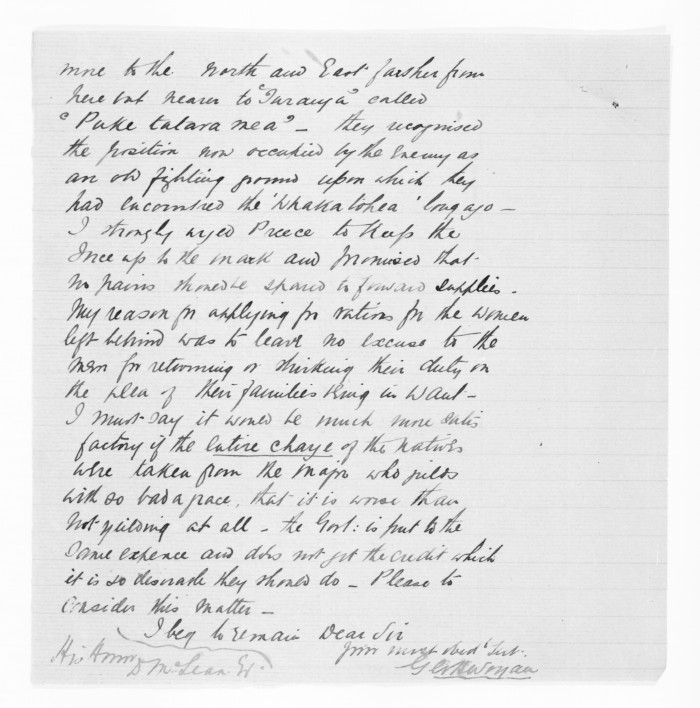 more to the North and East farther from
here but nearer to "Turanga" called
"Puke talara mea" — they recognised
the position now occupied by the Enemy as
an old fighting ground upon which they
had encountred the 'Whakatohea' long ago —
I strongly urged Preece to keep the
Force up to the mark and promised that
no pains should be spared to forward supplies.
My reason for applying for rations for the women
left behind was to leave no excuse to the
men for returning or shirking their duty on
the plea of their families being in want —
I must say it would be much more satis
factory if the entire charge of the natives
were taken from the Major who yields
with so bad a grace, that it is worse than
not yielding at all — the Govt: is put to the
same expence and does not get the credit which
it is so desirable they should do — Please to
consider this matter —
I beg to remain Dear Sir
Your most obedt Svt.
His Honor
D McLean Esq.